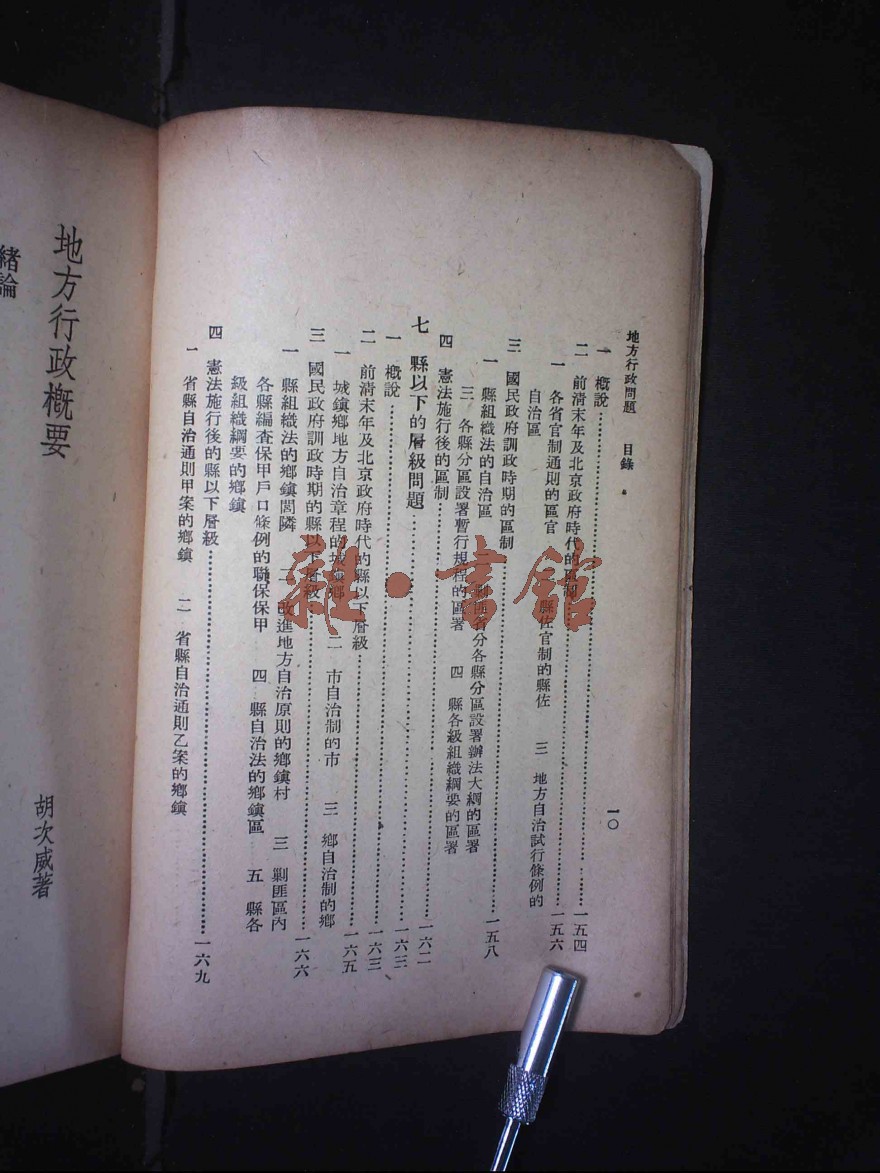 地方行政問題 目錄 一〇
一 概說……一五四
二 前清末年及北京政府時代的區制……一五六
一 各省官制通則的區官 縣佐官制的縣佐 三 地方自治試行條例的
自治區
三 國民政府訓政時期的區制……一五八
一 縣組織法的自治區 剿匪省分各縣分區設署辦法大綱的區署
三 各縣分區設署暫行規程的區署 四 縣各級組織綱要的區署
四 憲法施行後的區制……一六二
七 縣以下的層級問題……一六三
一 概說……一六三
二 前清末年及北京政府時代的縣以下層級……一六五
一 城鎮鄉地方自治章程的城鎮鄉 二 市自治制的市 三 鄉自治制的鄉
三 國民政府訓政時期的縣以下層級……一六六
一 縣組織法的鄉鎮閭隣 二 改進地方自治原則的鄉鎮村 三 剿匪區內
各縣編查保甲戶口條例的聯保保甲 四 縣自治法的鄉鎮區 五 縣各
級組織綱要的鄉鎮
四 憲法施行後的縣以下層級……一六九
一 省縣自治通則甲案的鄉鎮 二 省縣自治通則乙案的鄉鎮
地方行政概要
胡次威著
緒論
雜·書館